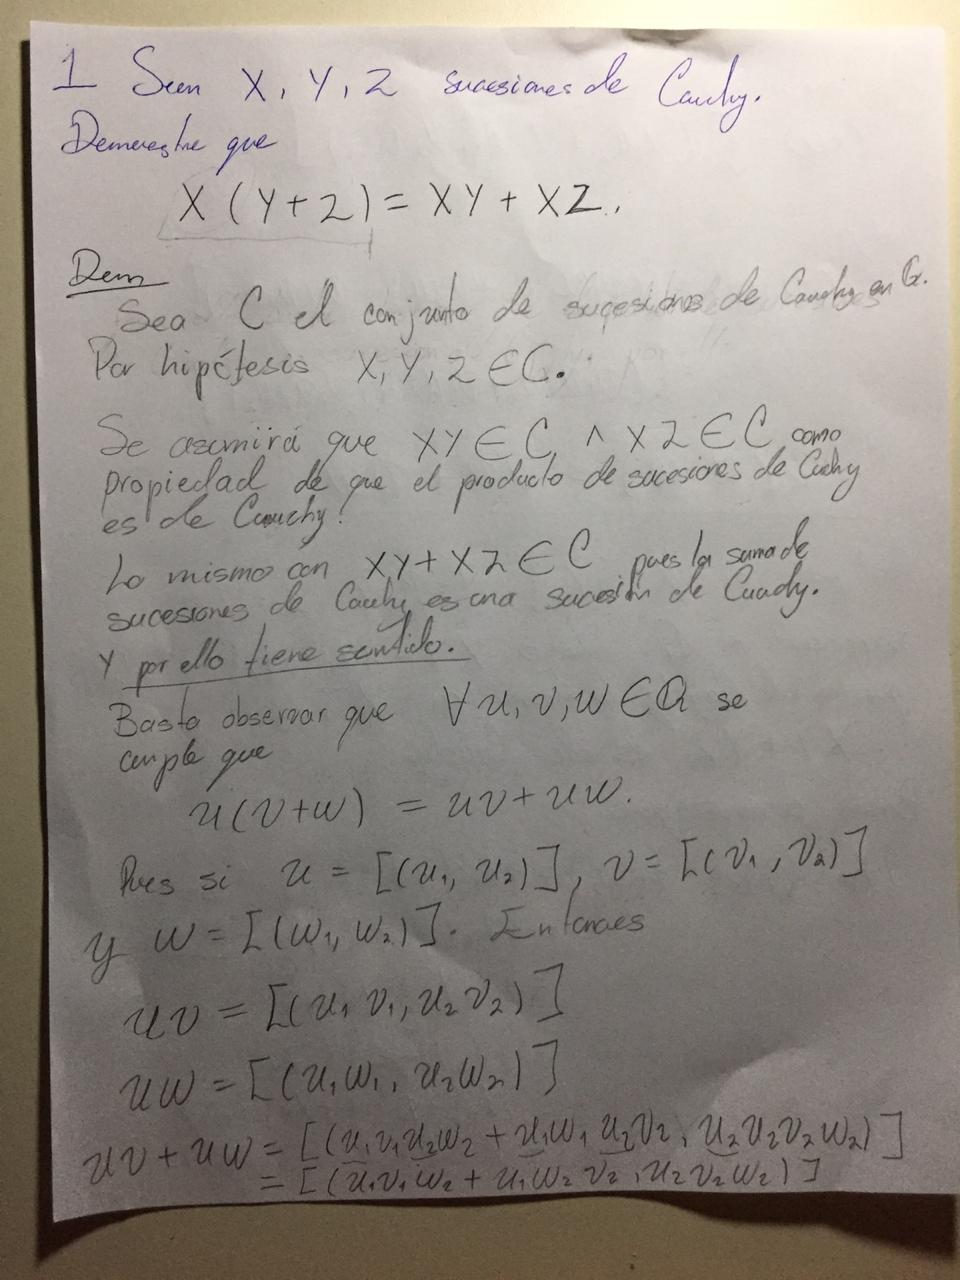 1 Sean X, Y, Z sucesiones de Cauchy.
Demuestre que
X(Y+Z) = XY + XZ.
Dem
Sea C el conjunto de sucesiones de Cauchy en Q.
Por hipótesis X, Y, Z ∈ C.
Se asumirá que XY ∈ C ∧ XZ ∈ C, como
propiedad de que el producto de sucesiones de Cauchy
es de Cauchy.
Lo mismo con XY + XZ ∈ C pues la suma de
sucesiones de Cauchy es una sucesión de Cauchy.
Y por ello tiene sentido.
Basta observar que ∀ u, v, w ∈ Q se
cumple que
u(v+w) = uv + uw.
Pues si u = [(u₁, u₂)], v = [(v₁, v₂)]
y w = [(w₁, w₂)]. Entonces
uv = [(u₁v₁, u₂v₂)]
uw = [(u₁w₁, u₂w₂)]
uv + uw = [(u₁v₁u₂w₂ + u₁w₁u₂v₂, u₂u₂v₂w₂)]
= [(u₁v₁w₂ + u₁w₂v₂, u₂v₂w₂)]